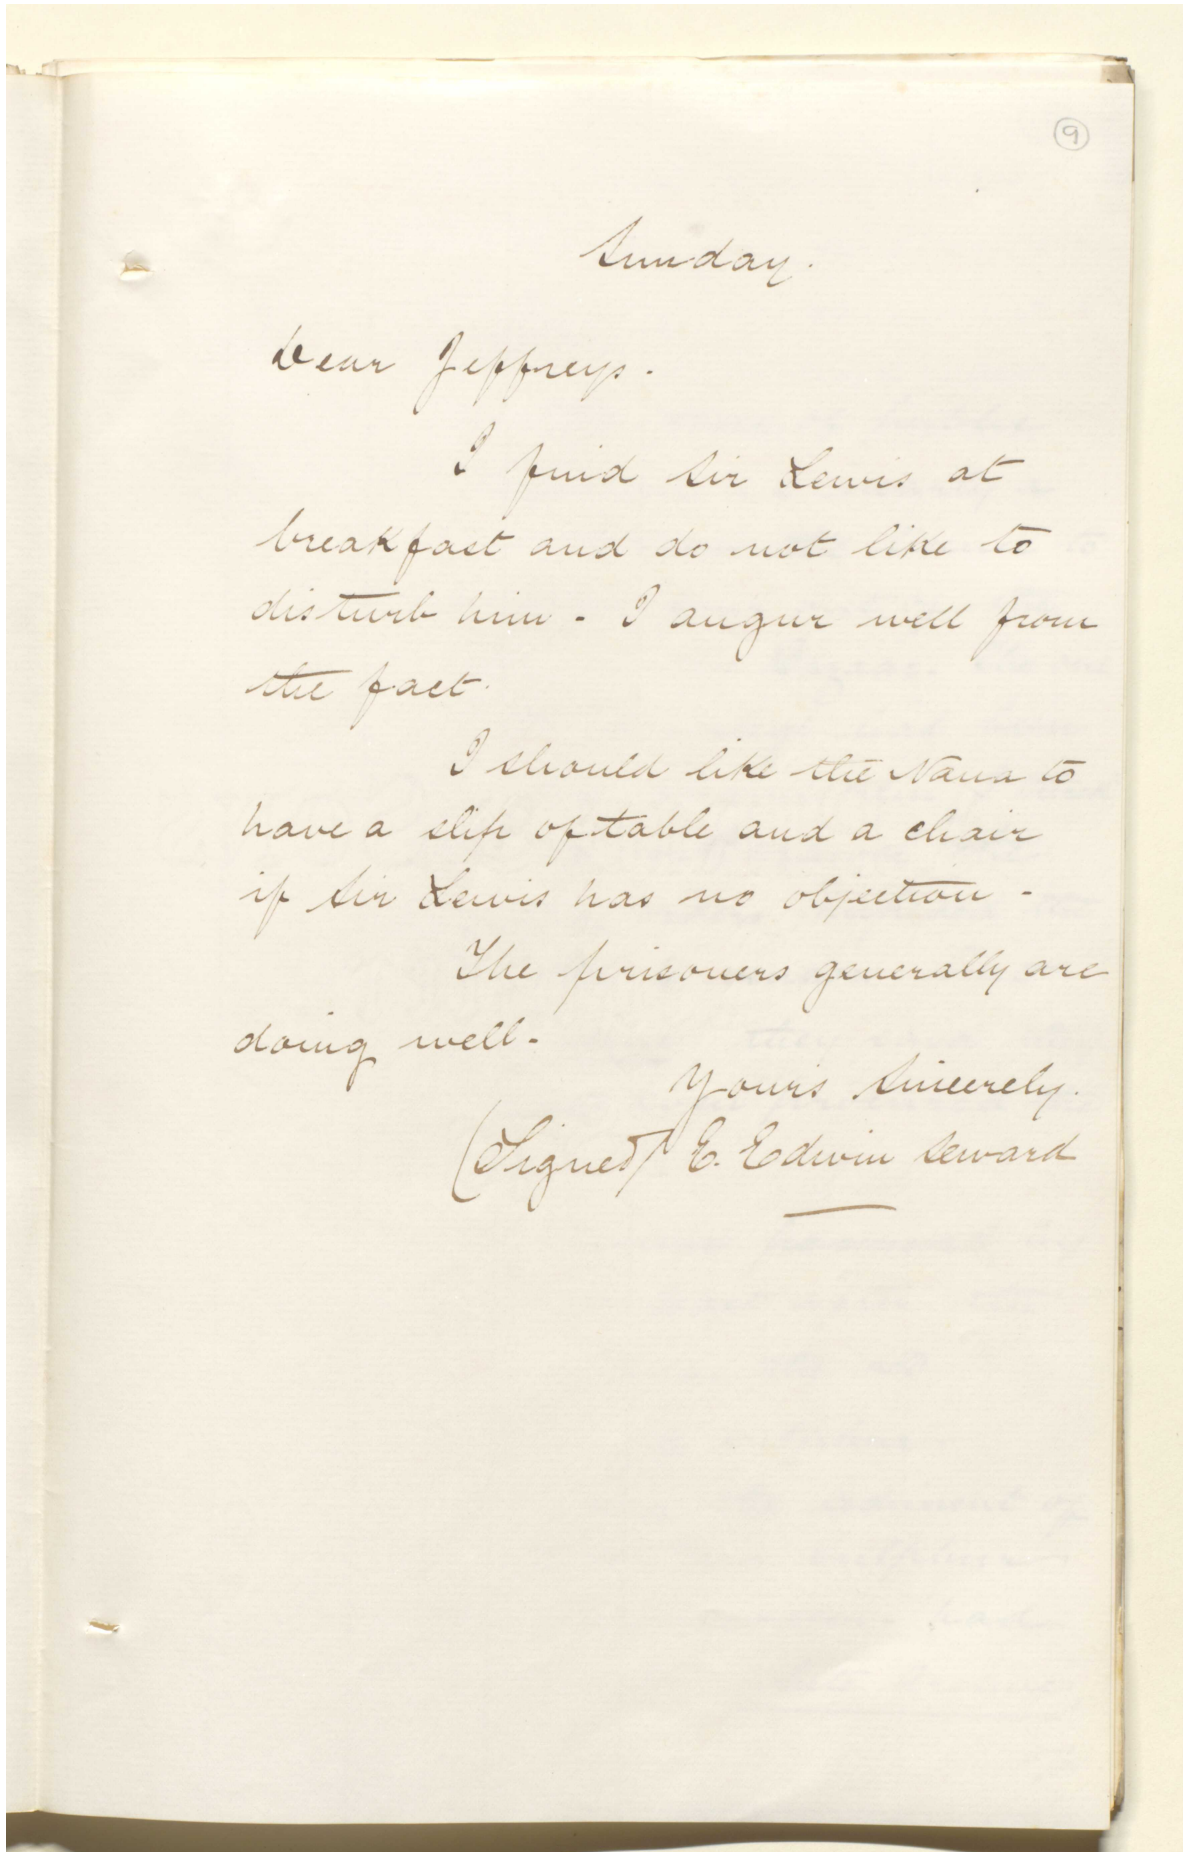 9
Sunday.
Dear Jeffreys.
I find Sir Lewis at
breakfast and do not like to
disturb him - I augur well from
the fact.
I should like the Nana to
have a slip of table and a chair
if Sir Lewis has no objection -
The prisoners generally are
doing well -
Yours Sincerely.
(Signed) E. Edwin Seward